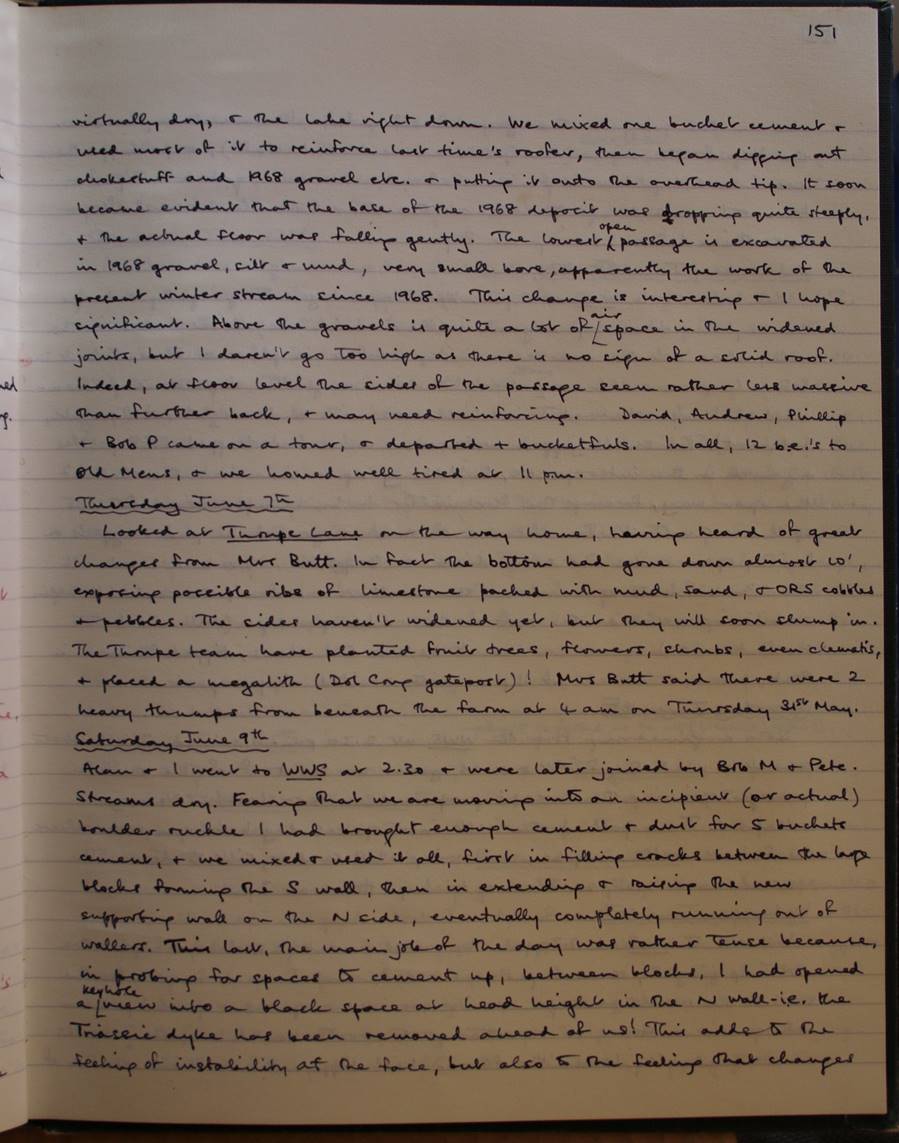 151
virtually dry, & the lake right down. We mixed one bucket cement &
used most of it to reinforce last time's roofer, then began digging out
chokestuff and 1968 gravel etc. & putting it onto the overhead tip. It soon
became evident that the base of the 1968 deposit was dropping quite steeply,
& the actual floor was falling gently. The lowest open passage is excavated
in 1968 gravel, silt & mud, very small bore, apparently the work of the
present winter stream since 1968. This change is interesting & I hope
significant. Above the gravels is quite a lot of air space in the widened
joints, but I daren't go too high as there is no sign of a solid roof.
Indeed, at floor level the sides of the passage seem rather less massive
than further back, & may need reinforcing. David, Andrew, Phillip
& Bob P came on a tour, & departed + bucketfuls. In all, 12 b.e.'s to
Old Mens, & we homed well tired at 11 pm.
Thursday June 7th
Looked at Thrupe Lane on the way home, having heard of great
changes from Mrs Butt. In fact the bottom had gone down almost 10',
exposing possible ribs of limestone packed with mud, sand, & ORS cobbles
& pebbles. The sides haven't widened yet, but they will soon slump in.
The Thrupe team have planted fruit trees, flowers, shrubs, even clematis,
& placed a megalith (Dol Conc gatepost)! Mrs Butt said there were 2
heavy thumps from beneath the farm at 4 am on Thursday 31st May.
Saturday June 9th
Alan & I went to WWS at 2.30 & were later joined by Bob M & Pete.
Streams dry. Fearing that we are moving into an incipient (or actual)
boulder ruckle I had brought enough cement & dust for 5 buckets
cement, & we mixed & used it all, first in filling cracks between the large
blocks forming the S wall, then in extending & raising the new
supporting wall on the N side, eventually completely running out of
wallers. This last, the main job of the day was rather tense because,
in probing for spaces to cement up, between blocks, I had opened
a keyhole view into a black space at head height in the N wall - i.e. the
Triassic dyke has been removed ahead of us! This adds to the
feeling of instability at the face, but also to the feeling that changes